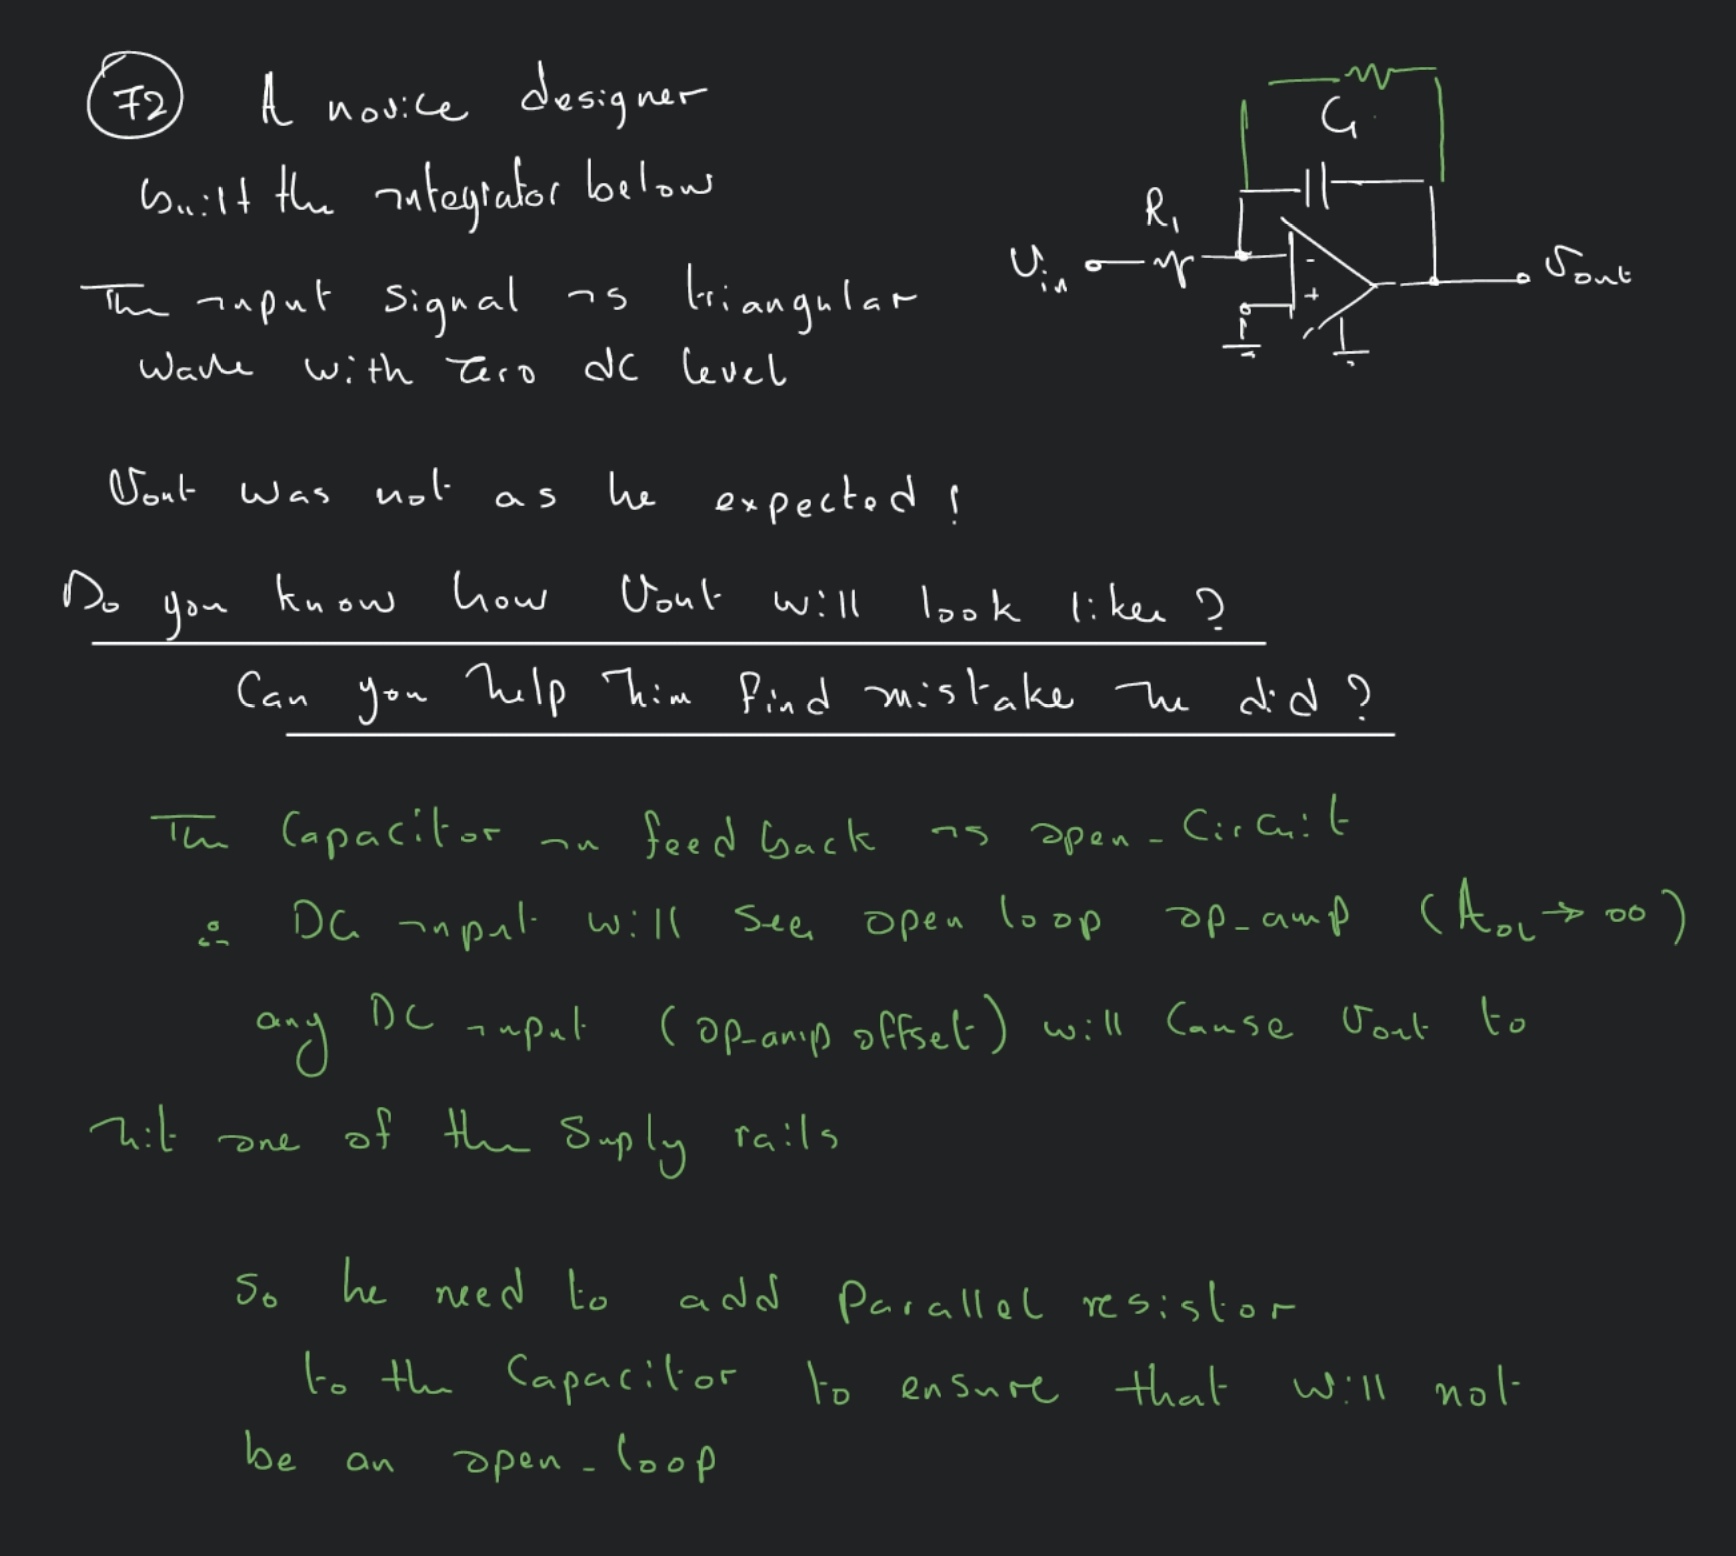 72 A novice designer
built the integrator below
The input signal is triangular
wave with zero dc level
C1
R1
Vin
-
+
Vout
Vout was not as he expected!
Do you know how Vout will look like?
Can you help him find mistake he did?
The Capacitor in feedback is open-Circuit
∴ DC input will see open loop op-amp (AOL → ∞)
any DC input (op-amp offset) will Cause Vout to
hit one of the Suply rails
So he need to add Parallel resistor
to the Capacitor to ensure that will not
be an open-loop